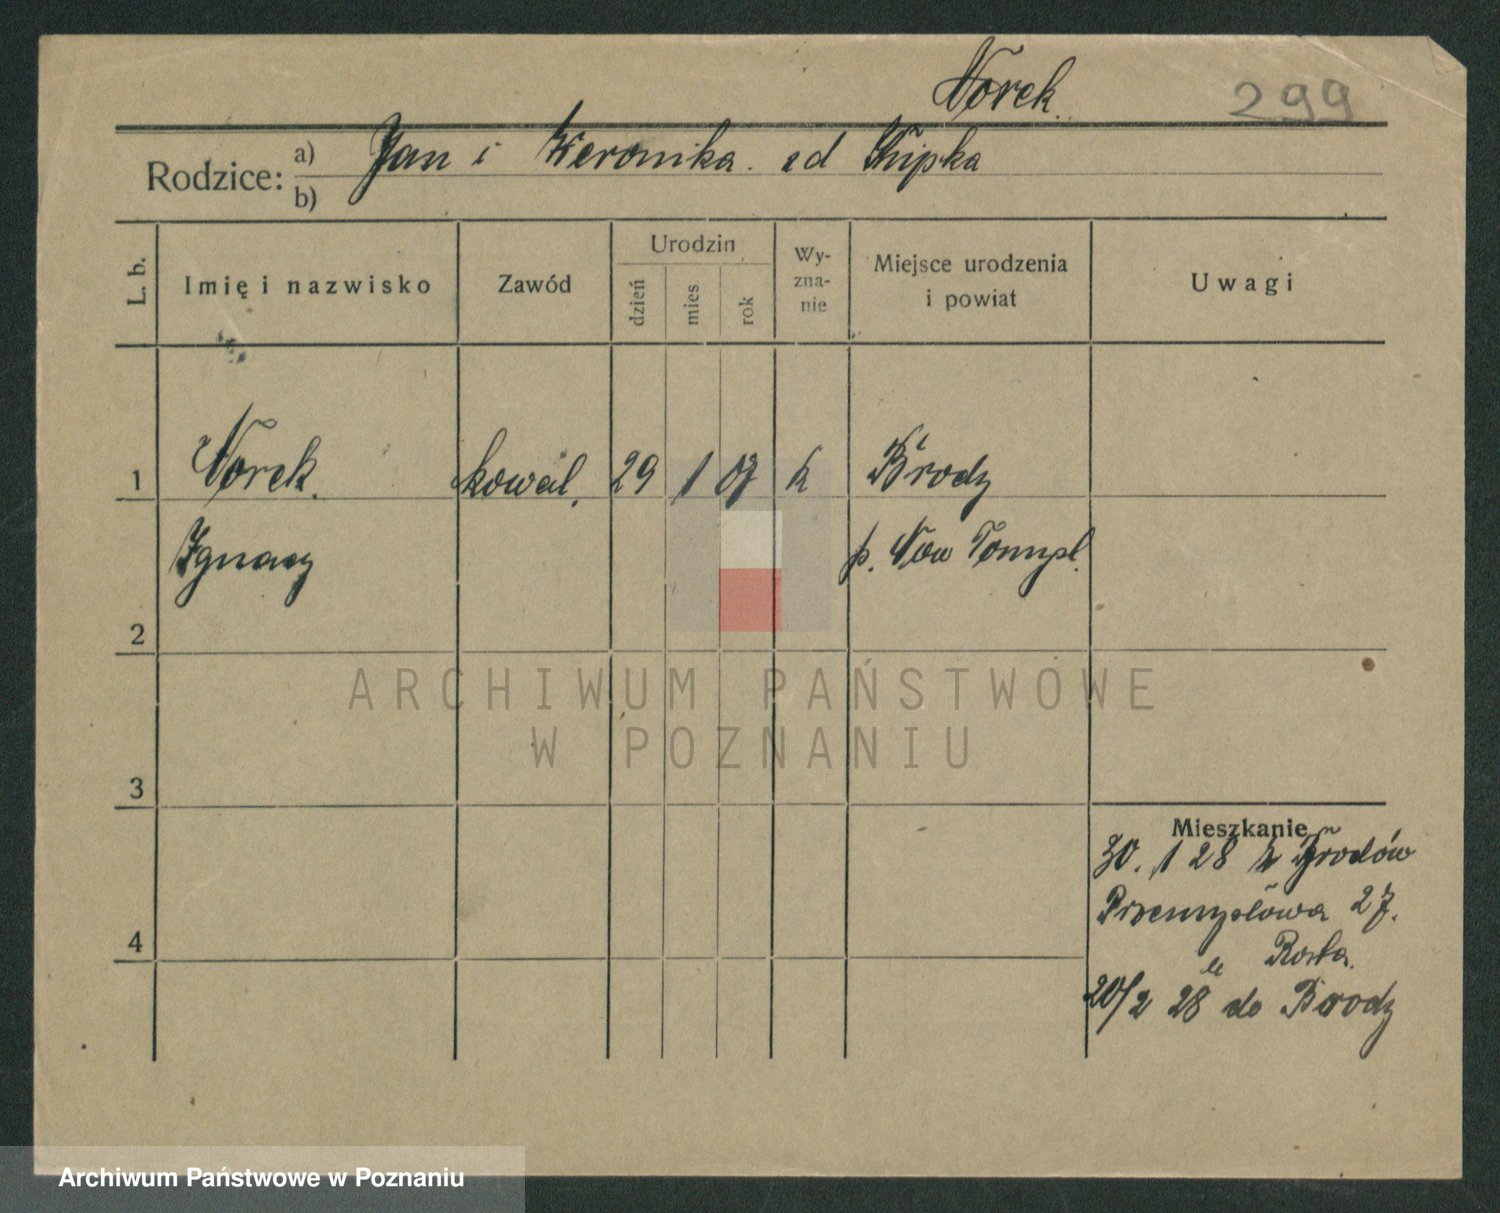 Norek 299
Rodzice: a) Jan i Weronika zd Skupka
b)
L. b. Imię i nazwisko Zawód Urodzin dzień mies rok Wy-zna-nie Miejsce urodzenia i powiat Uwagi
1 Norek kowal. 29 1 07 k Brody
Ignacy p. Now Tomysl.
2
ARCHIWUM PAŃSTWOWE
W POZNANIU
3
Mieszkanie
30. 1 28 z Brodów
Przemysłowa 27.
4
20/2 28 do Brody
Archiwum Państwowe w Poznaniu